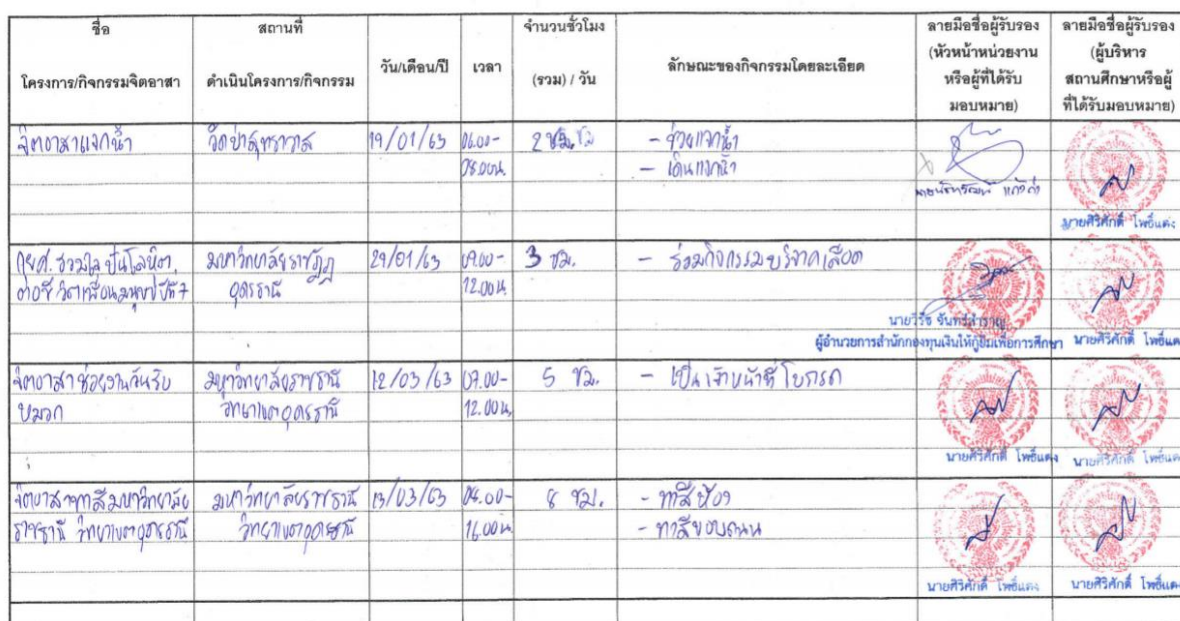 ชื่อ
โครงการ/กิจกรรมจิตอาสา
สถานที่
ดำเนินโครงการ/กิจกรรม
วัน/เดือน/ปี
เวลา
จำนวนชั่วโมง
(รวม) / วัน
ลักษณะของกิจกรรมโดยละเอียด
ลายมือชื่อผู้รับรอง
(หัวหน้าหน่วยงาน
หรือผู้ที่ได้รับ
มอบหมาย)
ลายมือชื่อผู้รับรอง
(ผู้บริหาร
สถานศึกษาหรือผู้
ที่ได้รับมอบหมาย)
จิตอาสาแจกน้ำ
19/01/63
06.00-
08.00น.
2
ชม.
- ช่วยแจกน้ำ
- เดินแจกน้ำ
นายศิริศักดิ์ โพธิ์แดง
กยศ. รวมใจ ปันโลหิต
ต่อชีวิตเพื่อนมนุษย์ปีที่ 7
มหาวิทยาลัยราชภัฏ
อุดรธานี
29/01/63
09.00-
12.00น.
3 ชม.
- ร่วมกิจกรรมบริจาคเลือด
นายวิรัช จันทร์สำราญ
ผู้อำนวยการสำนักกองทุนเงินให้กู้ยืมเพื่อการศึกษา
นายศิริศักดิ์ โพธิ์แดง
จิตอาสาช่วยงานวันรับ
หมวก
มหาวิทยาลัยราชธานี
วิทยาเขตอุดรธานี
12/03/63
07.00-
12.00น.
5 ชม.
- เป็นเจ้าหน้าที่
นายศิริศักดิ์ โพธิ์แดง
นายศิริศักดิ์ โพธิ์แดง
จิตอาสาทาสีมหาวิทยาลัย
ราชธานี วิทยาเขตอุดรธานี
มหาวิทยาลัยราชธานี
วิทยาเขตอุดรธานี
13/03/63
16.00น.
8 ชม.
- ทาสีห้อง
- ทาสีขอบถนน
นายศิริศักดิ์ โพธิ์แดง
นายศิริศักดิ์ โพธิ์แดง